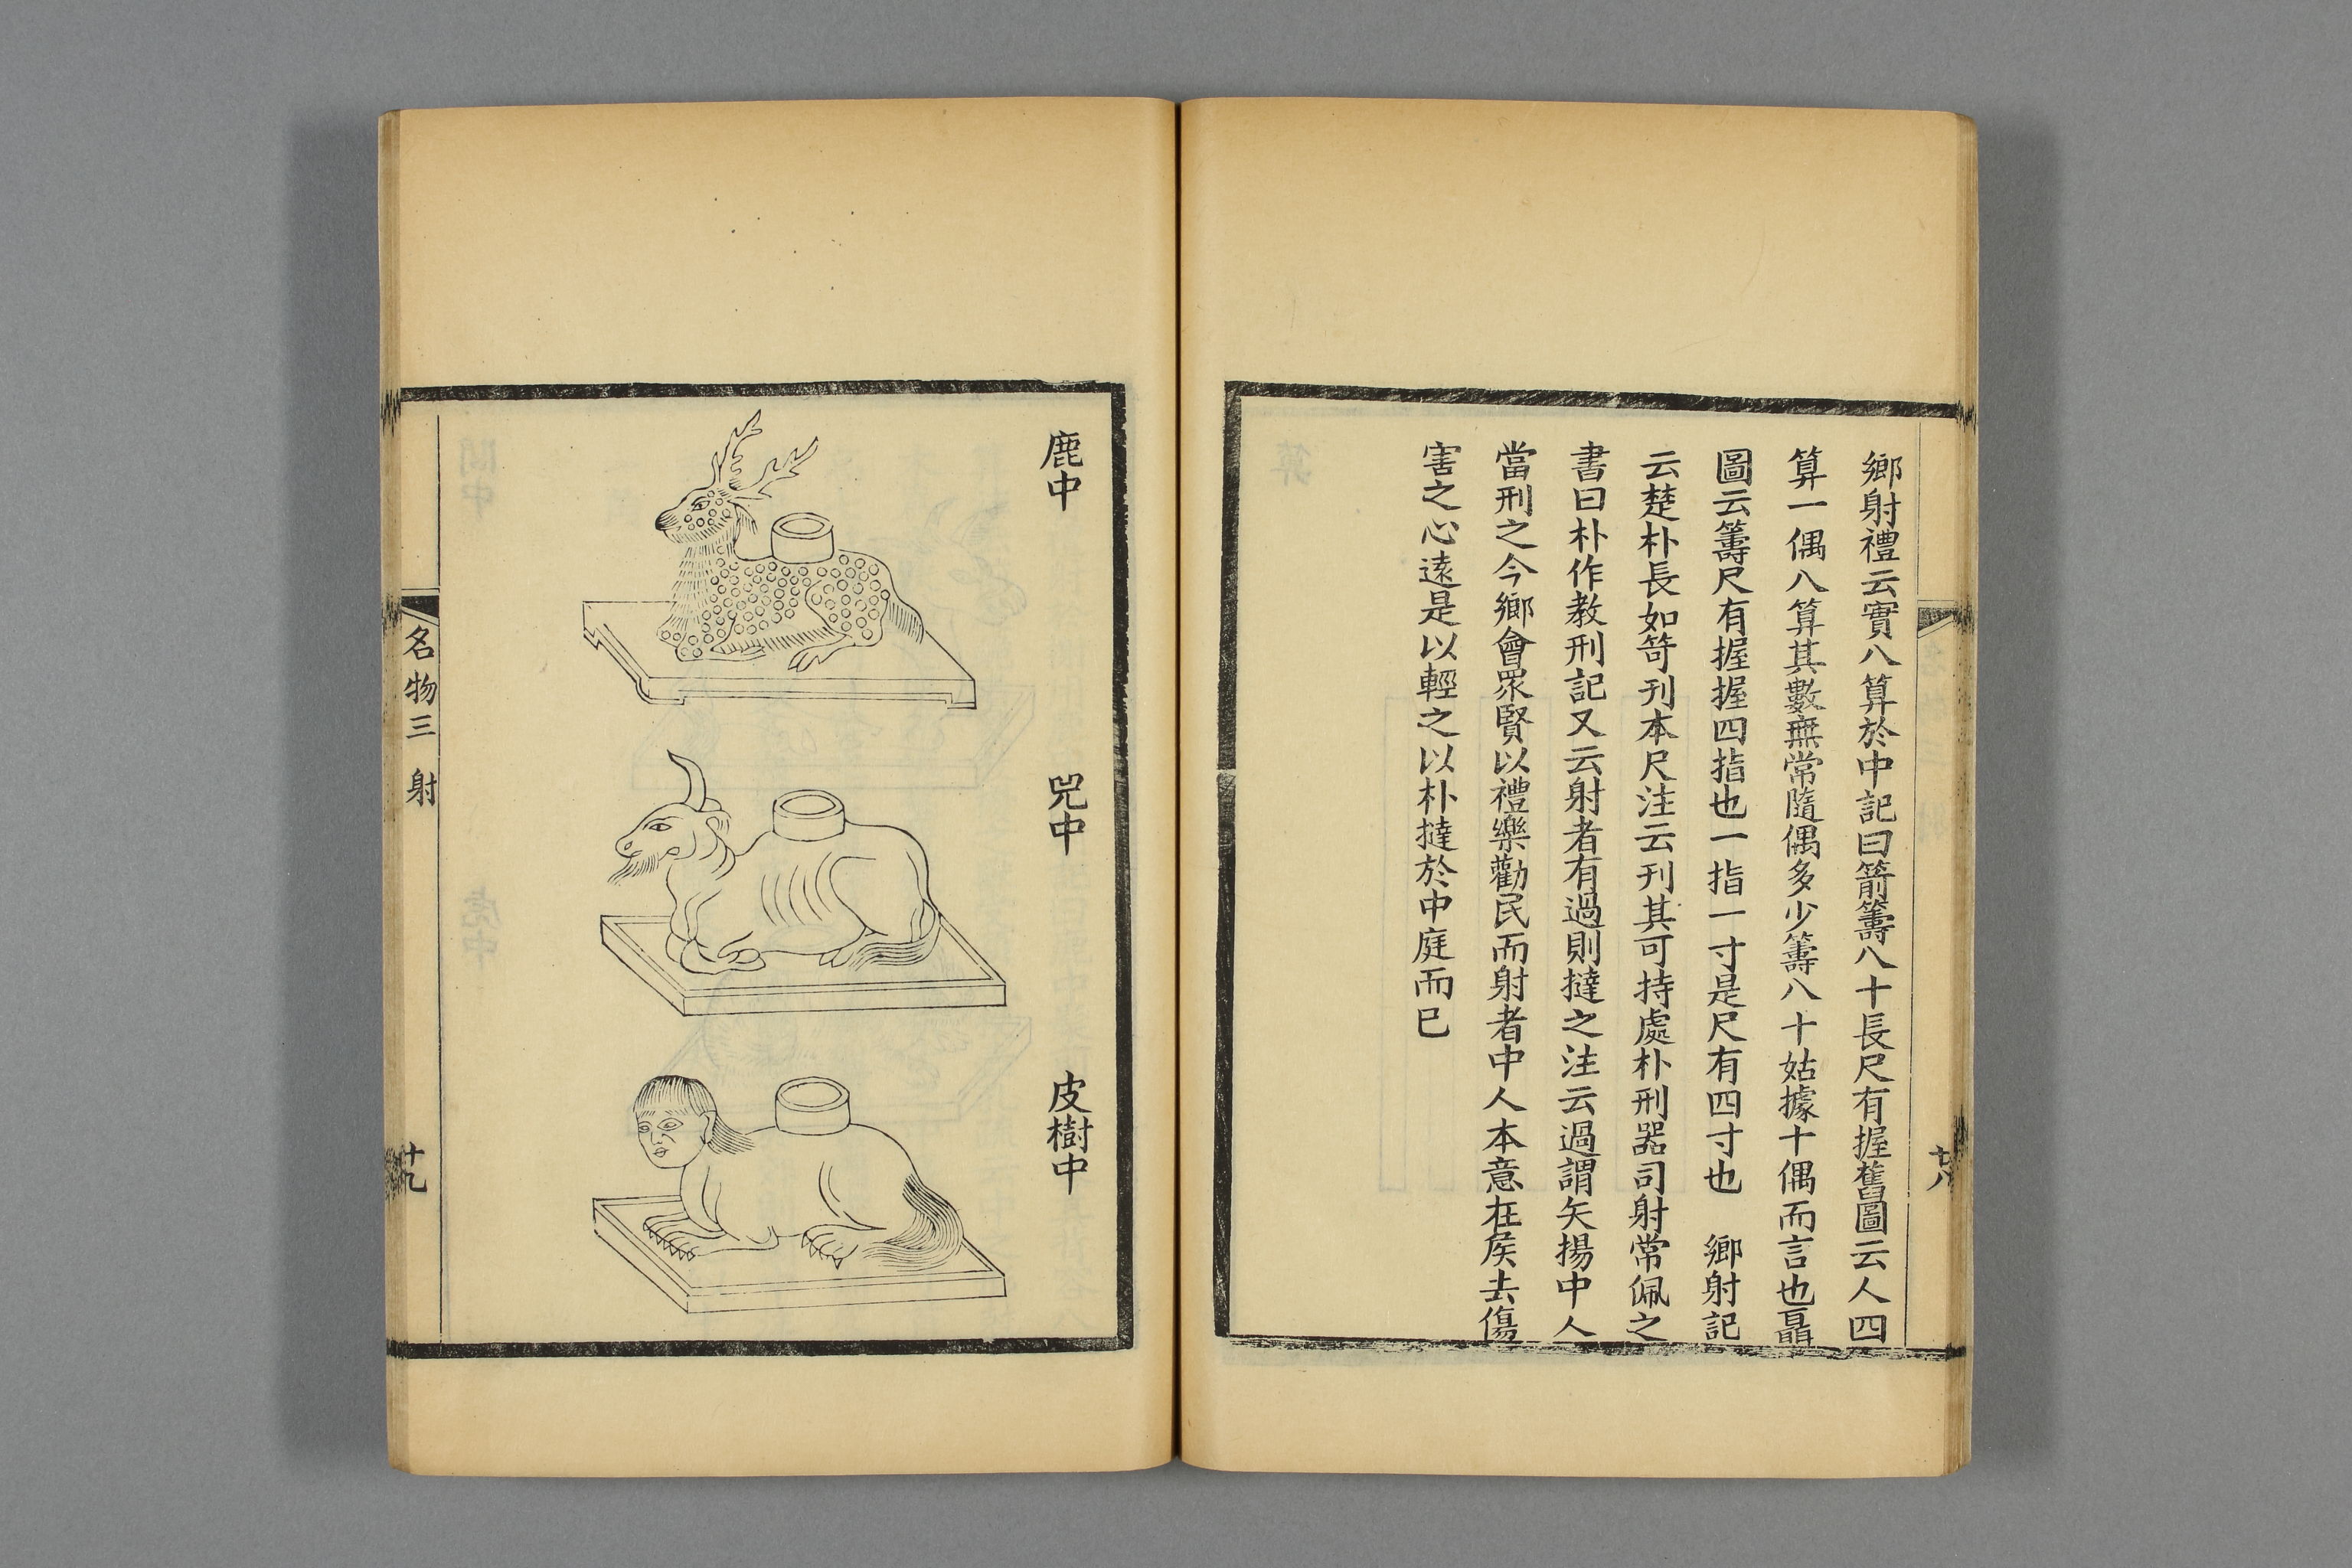 鄉射禮云實八算於中記曰箭籌八十長尺有握舊圖云人四
算一偶八算其數無常隨偶多少籌八十姑據十偶而言也聶
圖云籌尺有握握四指也一指一寸是尺有四寸也　鄉射記
云楚朴長如笴刊本尺注云刊其可持處朴刑器司射常佩之
書曰朴作教刑記又云射者有過則撻之注云過謂矢揚中人
當刑之今鄉會眾賢以禮樂勸民而射者中人本意在矦去傷
害之心遠是以輕之以朴撻於中庭而已
鹿中
兕中
皮樹中
名物三　射